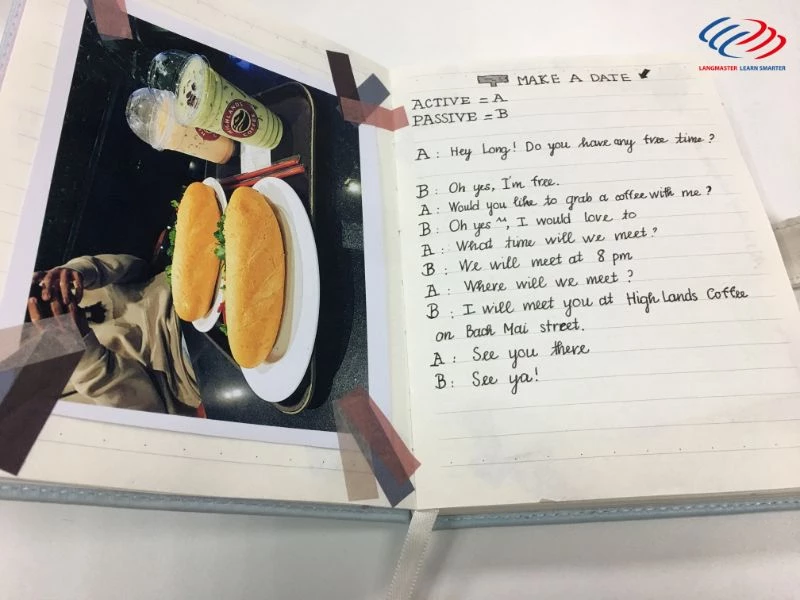 HIGHLANDS COFFEE
LANGMASTER LEARN SMARTER
MAKE A DATE
ACTIVE = A
PASSIVE = B
A : Hey Long! Do you have any free time ?
B : Oh yes, I'm free.
A : Would you like to grab a coffee with me ?
B : Oh yes ^^, I would love to
A : What time will we meet ?
B : We will meet at 8 pm
A : Where will we meet ?
B : I will meet you at High Lands Coffee
on Bach Mai street.
A : See you there
B : See ya!